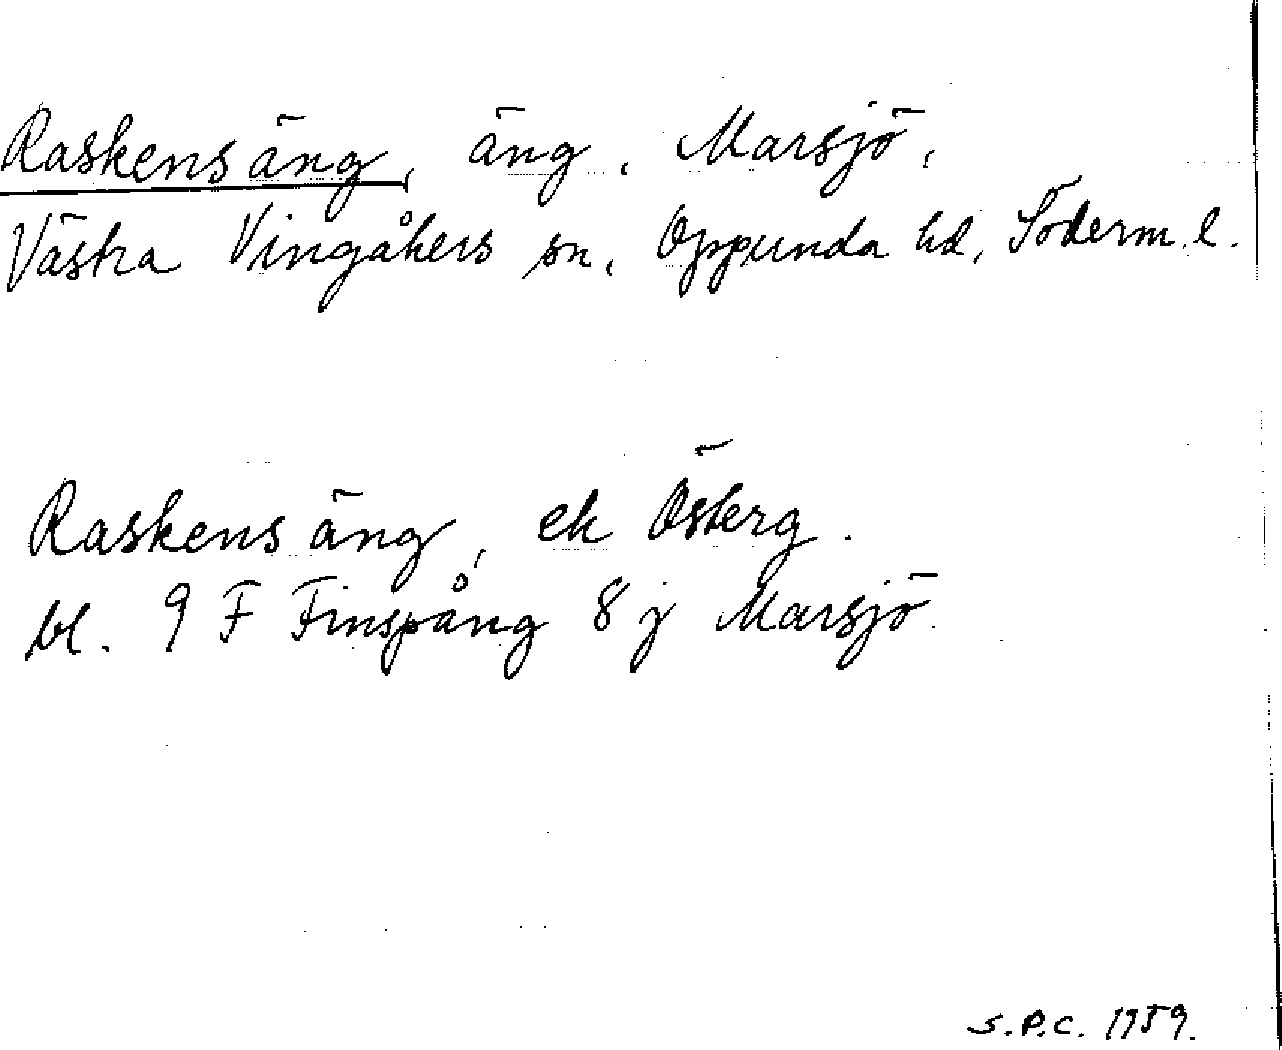 Raskens äng, äng, Marsjö,
Västra Vingåkers sn, Oppunda hd, Söderm. l.
Raskens äng, ek Österg.
bl. 9 F Finspång 8 j Marsjö.
S.P.C. 1959.